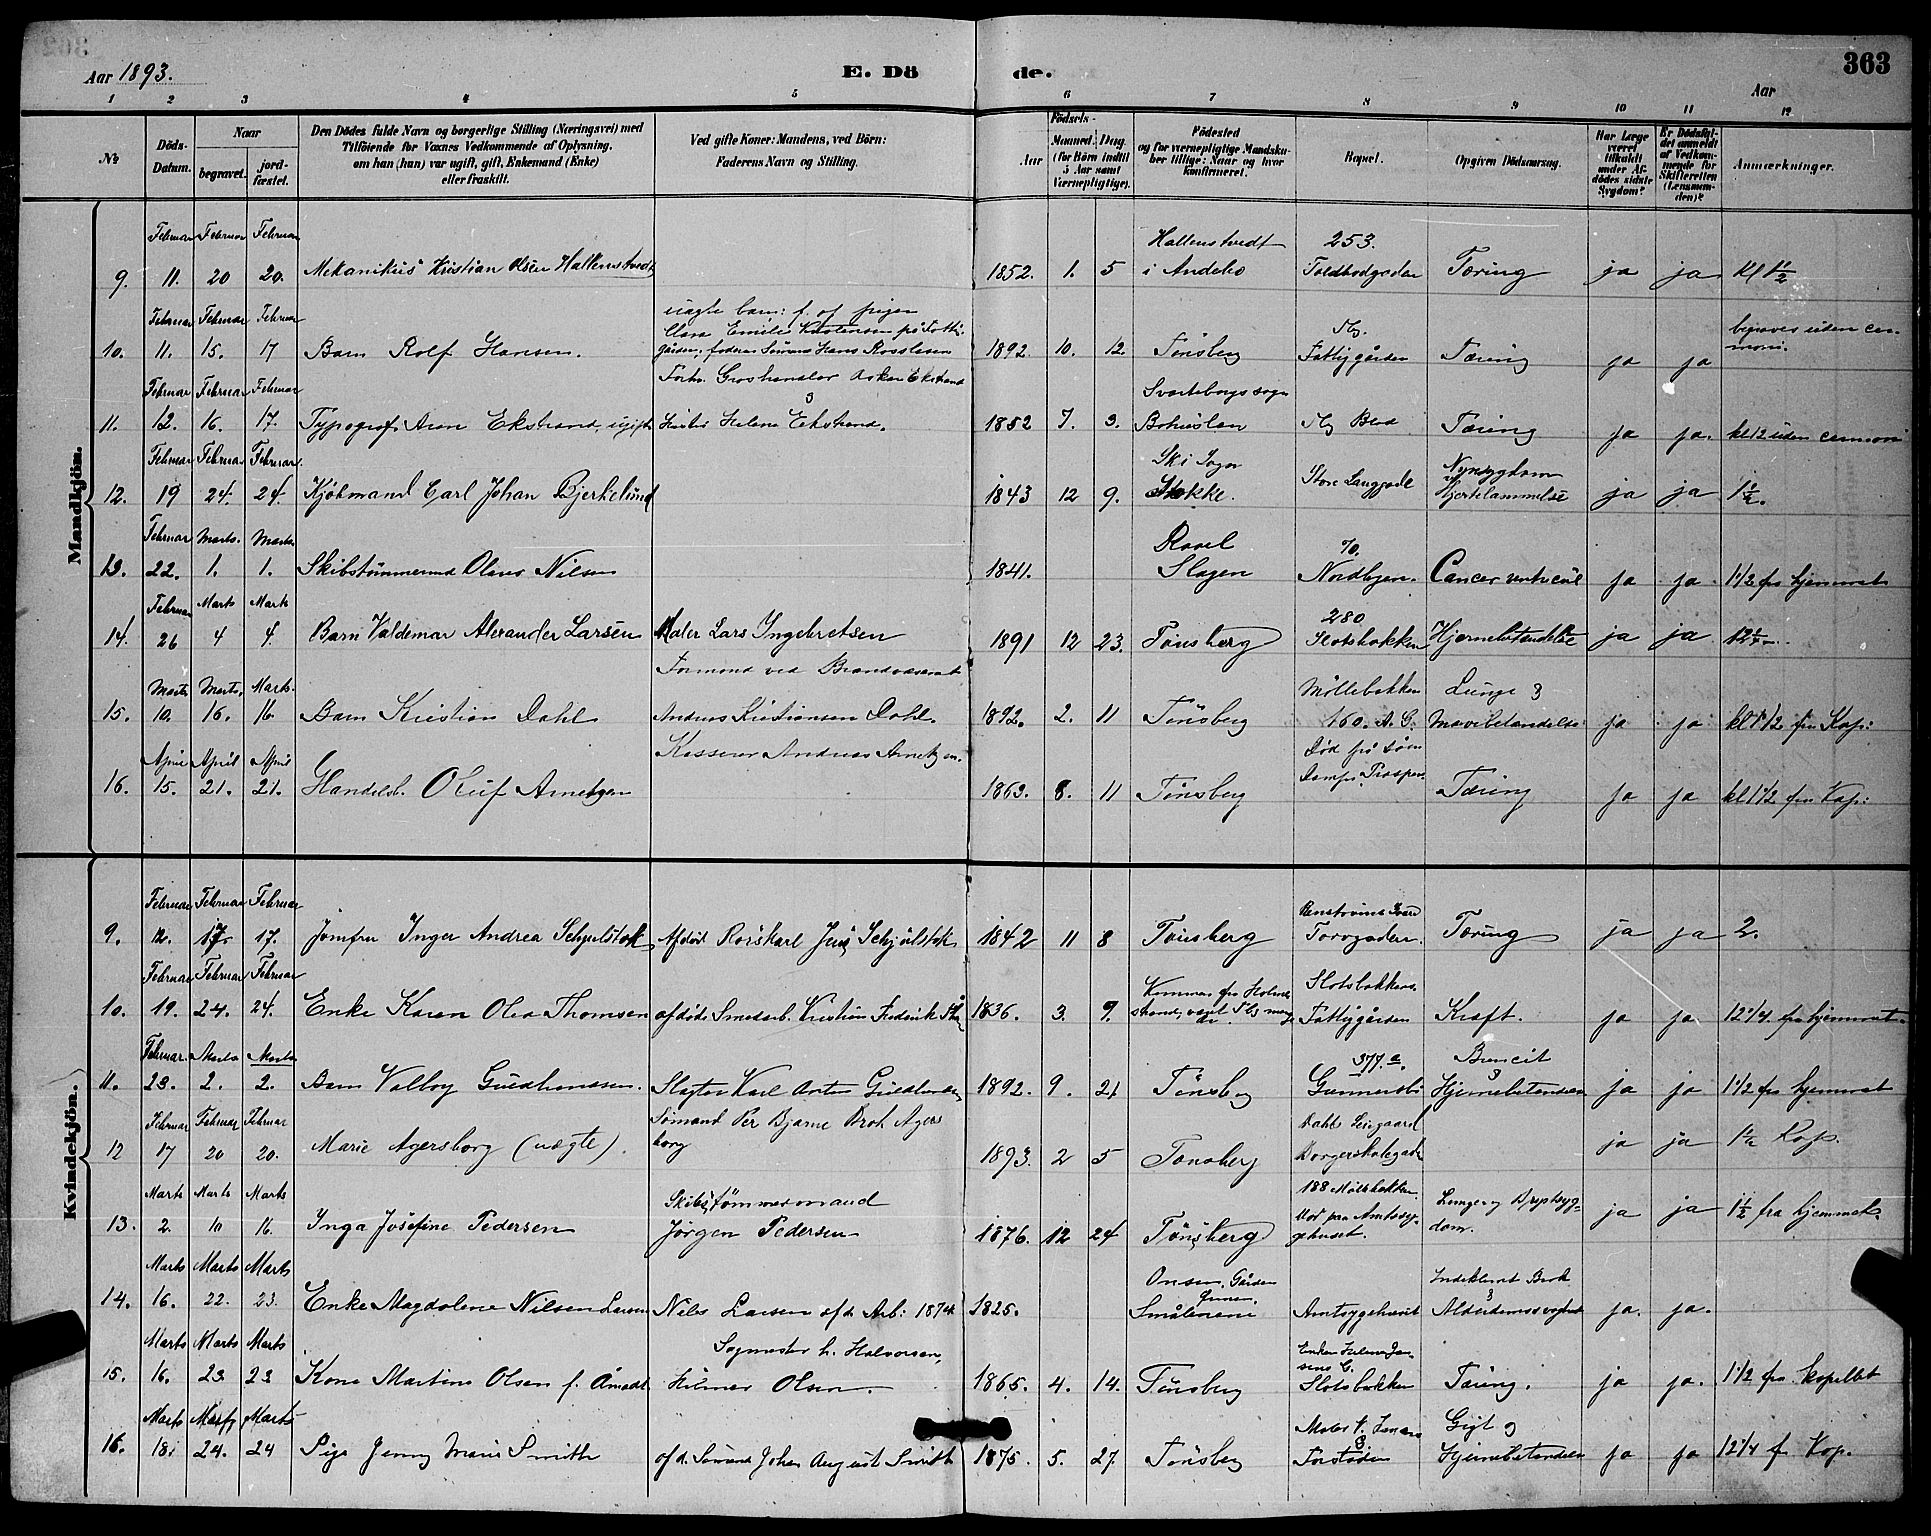 Aar 1893. E. Dö de. 363
Aar
1 2 3 4 5 6 7 8 9 10 11 12
№ Döds-Datum. Naar begravet. jord-fæstet. Den Dödes fulde Navn og borgerlige Stilling (Næringsvei) med Tilföiende for Voxnes Vedkommende af Oplysning, om han (hun) var ugift, gift, Enkemand (Enke) eller fraskilt. Ved gifte Koner: Mandens, ved Börn: Faderens Navn og Stilling. Födsels- Aar Maaned. Dag. (for Börn indtil 5 Aar samt Værnepligtige). Födested og for værnepligtige Mandskaber tillige: Naar og hvor konfirmeret. Bopæl. Opgiven Dödsaarsag. Har Læge været tilkaldt under Afdödes sidste Sygdom? Er Dödsfaldet anmeldt af Vedkommende for Skifteretten (Lensmanden)? Anmærkninger.
Mandkjön.
Februar Februar Februar Hallenstvedt 253.
9. 11. 20 20. Mekanikus Kristian Olsen Hallenstvedt 1852. 1. 5 i Andebo Toldbodgaden Tæring ja ja Kl 1½
Februar Februar Februar uægte barn: f. af pigen
Clara Emilie Kristensen på Fattig-
10. 11. 15. 17 Barn Rolf Hansen. gården, faderen Sømand Hans 1892 10. 12. Tönsberg Fattiggården Tæring ja ja begraves uden cere-
moni.
Februar Februar Februar Forhv. Groshandler Ekstrand Svarteborgs sogn
11. 12. 16. 17. Typograf Aron Ekstrand, ugift Helene Ekstrand. 1852 7. 3. Bohuslen Tæring ja ja. kl 12 uden ceremoni
Februar Februar Februar. Ski Sogn Nyresygdom
12. 19 24. 24. Kjöbmand Carl Johan Bjerkelund 1843 12 9. Stokke. Store Langgade Hjertelammelse ja ja 1½.
Februar Marts. Marts 70.
13. 22. 1. 1. Skibstömmermd Olaus Nilsen 1841. Slagen Nordbyen. Cancer ventricul ja ja 1½ fra hjemmet
Februar Marts Marts 280
14. 26 4 4. Barn Valdemar Alexander Larsen Maler Lars Ingebretsen 1891 12 23. Tönsberg Slotsbakken Hjernebetændelse ja ja 12¼
Formand ved Brandvæsenet
Marts Marts. Marts. Möllebakken Lunge &
15. 10. 16. 16. Barn Kristian Dahl Andreas Kristiansen Dahl. 1892. 2. 11 Tönsberg 160. A. G. Mavebetændelse ja ja kl 1½ fra Kap:
Kasserer Andreas Arnetzen.
April April April Död på
16. 15. 21. 21. Handelsb. Oluf Arnetzen 1863. 8. 11 Tönsberg Tæring ja ja kl 1½ fra Kap:
Kvindekjön.
Februar Februar Februar
9. 12. 17. 17. Jomfru Inger Andrea Schjulstok Afdöd Jens Schjölstok 1842 11 8 Tönsberg Torvgaden. Tæring ja ja 2.
Februar Februar Februar Kommen fra Holme- Slotsbakken
10. 19. 24. 24. Enke Karen Olea Thomsen afdöde Smedarb. Kristian Frederik 1836. 3. 9. strand, været i Tbg mange år Fattiggården Kræft. ja ja 12¼. fra hjemmet
Februar. Marts Marts 377. a.
11. 23. 2. 2. Barn Valborg Gudhandsen. Slagter Karl Anton 1892. 9. 21 Tönsberg Gunnersbö Hjernebetændelse ja ja 1½ fra hjemmet
Februar Februar Februar Sömand Per Bjarne Brok Agers Dahls Leiegaard
12 17 20 20. Marie Agersborg (uægte). borg 1893. 2 5 Tönsberg Borgerskolegaden ja ja 1½ Kap.
Marts Marts Marts Skibstömmermand 188 Möllebakken.
13. 2. 10 16. Inga Josefine Pedersen Jörgen Pedersen 1876. 12 24 Tönsberg Död paa Amtssygehuset. Lunge og Nyresygdom. ja ja 1½ fra hjemmet
Marts Marts Marts Onsø, Gården Indeklemt Brok
14. 16. 22. 23. Enke Magdalene Nilsen Larsen Nils Larsen afd. Arb: 1874 1825. Smålenene Amtsygehuset & Alderdomssvaghed ja. ja.
Marts Marts Marts Sognester h. Halvorsen, Enken Helene Jensens G.
15. 16. 23. 23 Kone Martine Olsen f. Hilmar Olsen 1865. 4. 14. Tönsberg Slotsbakken Tæring. ja ja. 1½ fra kapellet
Marts Marts Marts Gigt og
16. 18. 24. 24 Pige Jenny Marie Smith afd. Sömand Johan August Smith 1875. 5. 27. Tönsberg Forstaden Hjernebetændelse ja ja 12¼ fr Kap.